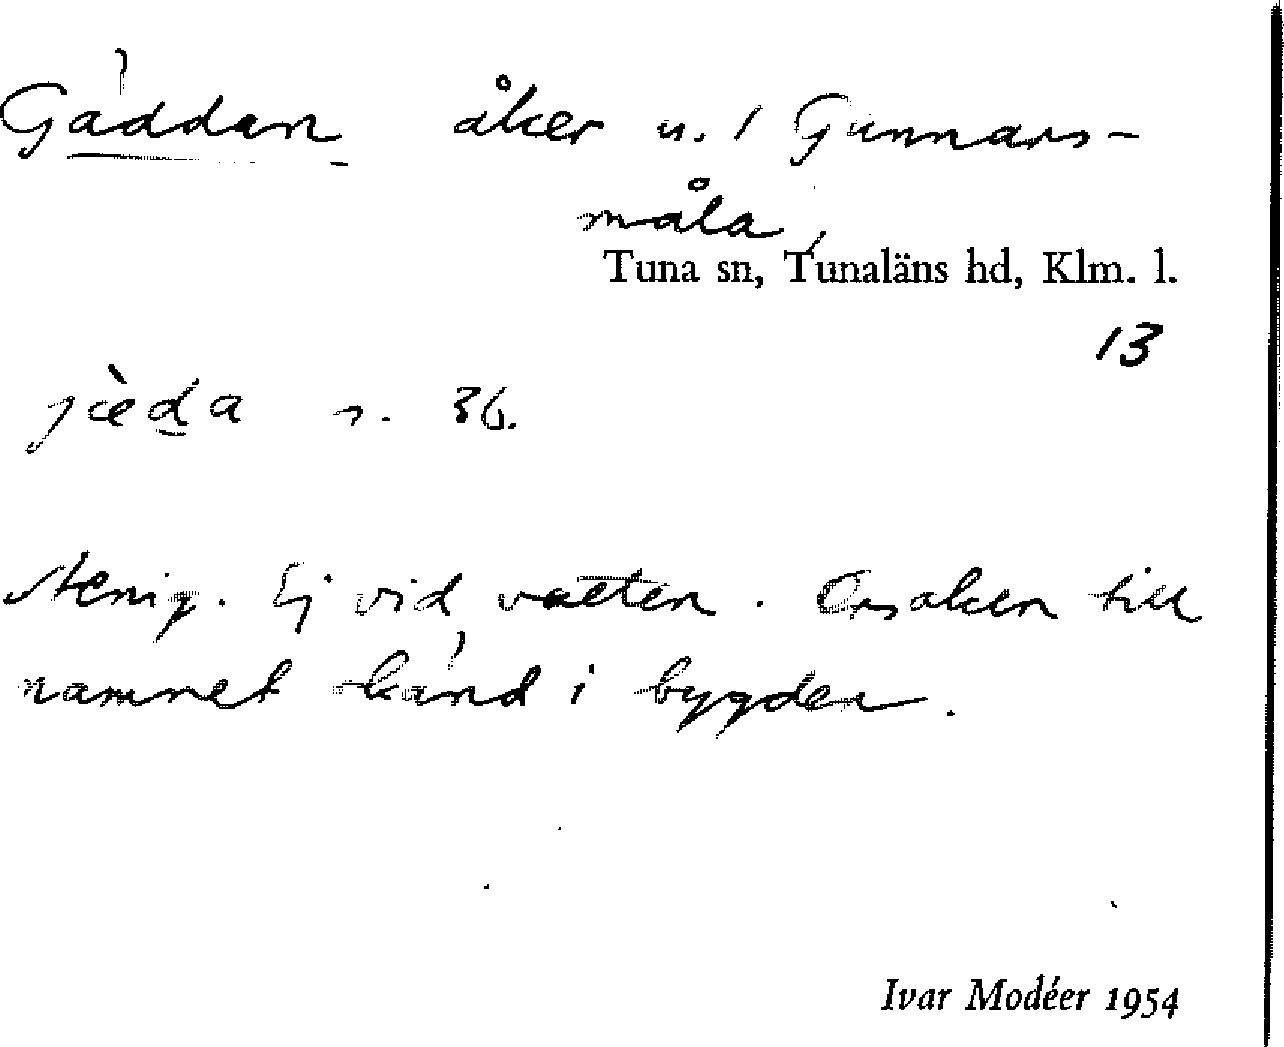 Gäddan åker u. 1 Gunnars-
måla,
Tuna sn, Tunaläns hd, Klm. l.
13
jæ̀da s. 36.
Stenig. Ej vid vatten. Orsaken till
namnet känd i bygden.
Ivar Modéer 1954